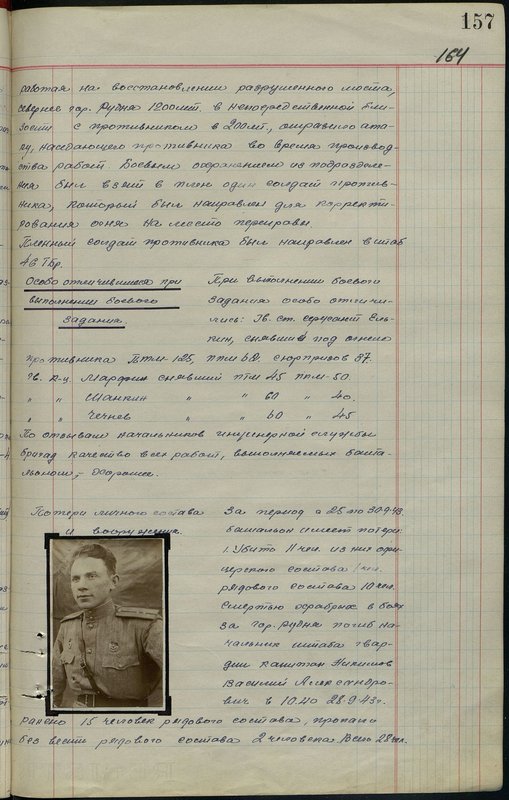 157
164
работая на восстановлении разрушенного моста,
севернее гор. Рудня 1200 мт. в непосредственной бли-
зости с противником в 200 мт., отразило ата-
ку, наседающего противника во время производ-
ства работ. Боевым охранением из подразделе-
ния был взят в плен один солдат против-
ника, который был направлен для корректи-
рования огня на место переправы.
Пленный солдат противника был направлен в штаб
46 Тбр.
Особо отличившиеся при
выполнении боевого
задания.
При выполнении боевого
задания особо отличи-
лись: Гв. ст. сержант Ель-
кин, снявший под огнем
противника ПТМ-125, ппм 62, сюрпризов 37.
Гв. к-ц Марфин снявший птм 45 ппм-50.
" " Шанкин " " 60 " 40.
" " Чечнев " " 60 " 45
По отзывам начальников инженерной службы
бригад качество всех работ, выполняемых бата-
льоном, - хорошее.
Потери личного состава
и вооружения.
За период с 25 по 30.9.43
батальон имеет потери:
1. Убито 11 чел. из них офи-
церского состава 1 чел.
рядового состава 10 чел.
Смертью храбрых в боях
за гор. Рудня погиб на-
чальник штаба гвар-
дии капитан Никишов
Василий Александро-
вич в 10.40 28.9.43 г.
ранено 15 человек рядового состава, пропало
без вести рядового состава 2 человека. Всего 28 чел.